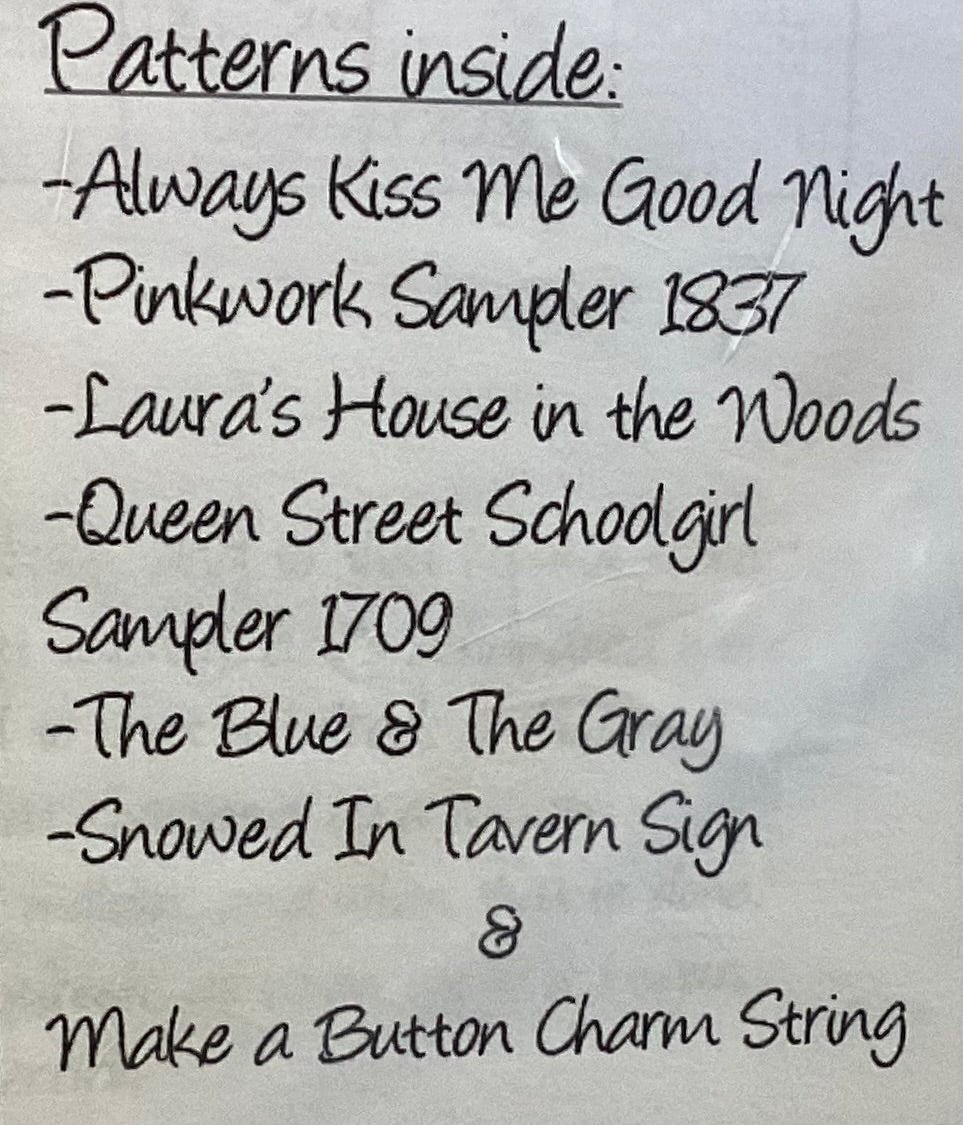 Patterns inside:
-Always Kiss Me Good Night
-Pinkwork Sampler 1837
-Laura's House in the Woods
-Queen Street Schoolgirl
Sampler 1709
-The Blue & The Gray
-Snowed In Tavern Sign
&
Make a Button Charm String